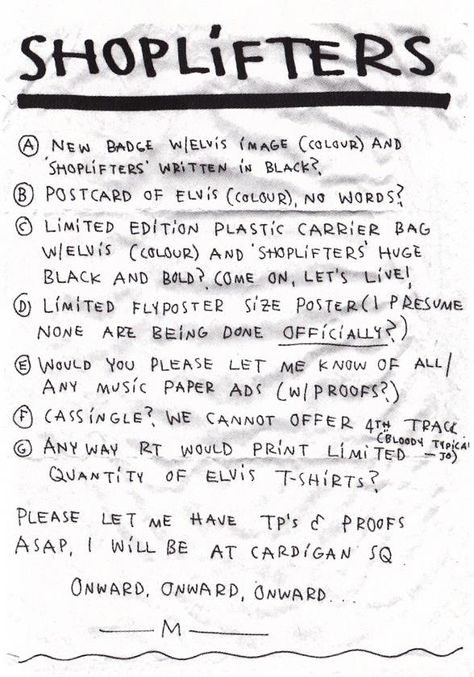 SHOPLIFTERS
Ⓐ NEW BADGE W/ELVIS IMAGE (COLOUR) AND
'SHOPLIFTERS' WRITTEN IN BLACK?
Ⓑ POSTCARD OF ELVIS (COLOUR), NO WORDS?
Ⓒ LIMITED EDITION PLASTIC CARRIER BAG
W/ELVIS (COLOUR) AND 'SHOPLIFTERS' HUGE
BLACK AND BOLD? COME ON, LET'S LIVE!
Ⓓ LIMITED FLYPOSTER SIZE POSTER (I PRESUME
NONE ARE BEING DONE OFFICIALLY?)
Ⓔ WOULD YOU PLEASE LET ME KNOW OF ALL/
ANY MUSIC PAPER ADS (W/PROOFS?)
Ⓕ CASSINGLE? WE CANNOT OFFER 4TH TRACK
(BLOODY TYPICAL
— JO)
Ⓖ ANYWAY RT WOULD PRINT LIMITED
QUANTITY OF ELVIS T-SHIRTS?
PLEASE LET ME HAVE TP'S & PROOFS
ASAP, I WILL BE AT CARDIGAN SQ
ONWARD, ONWARD, ONWARD...
— M —